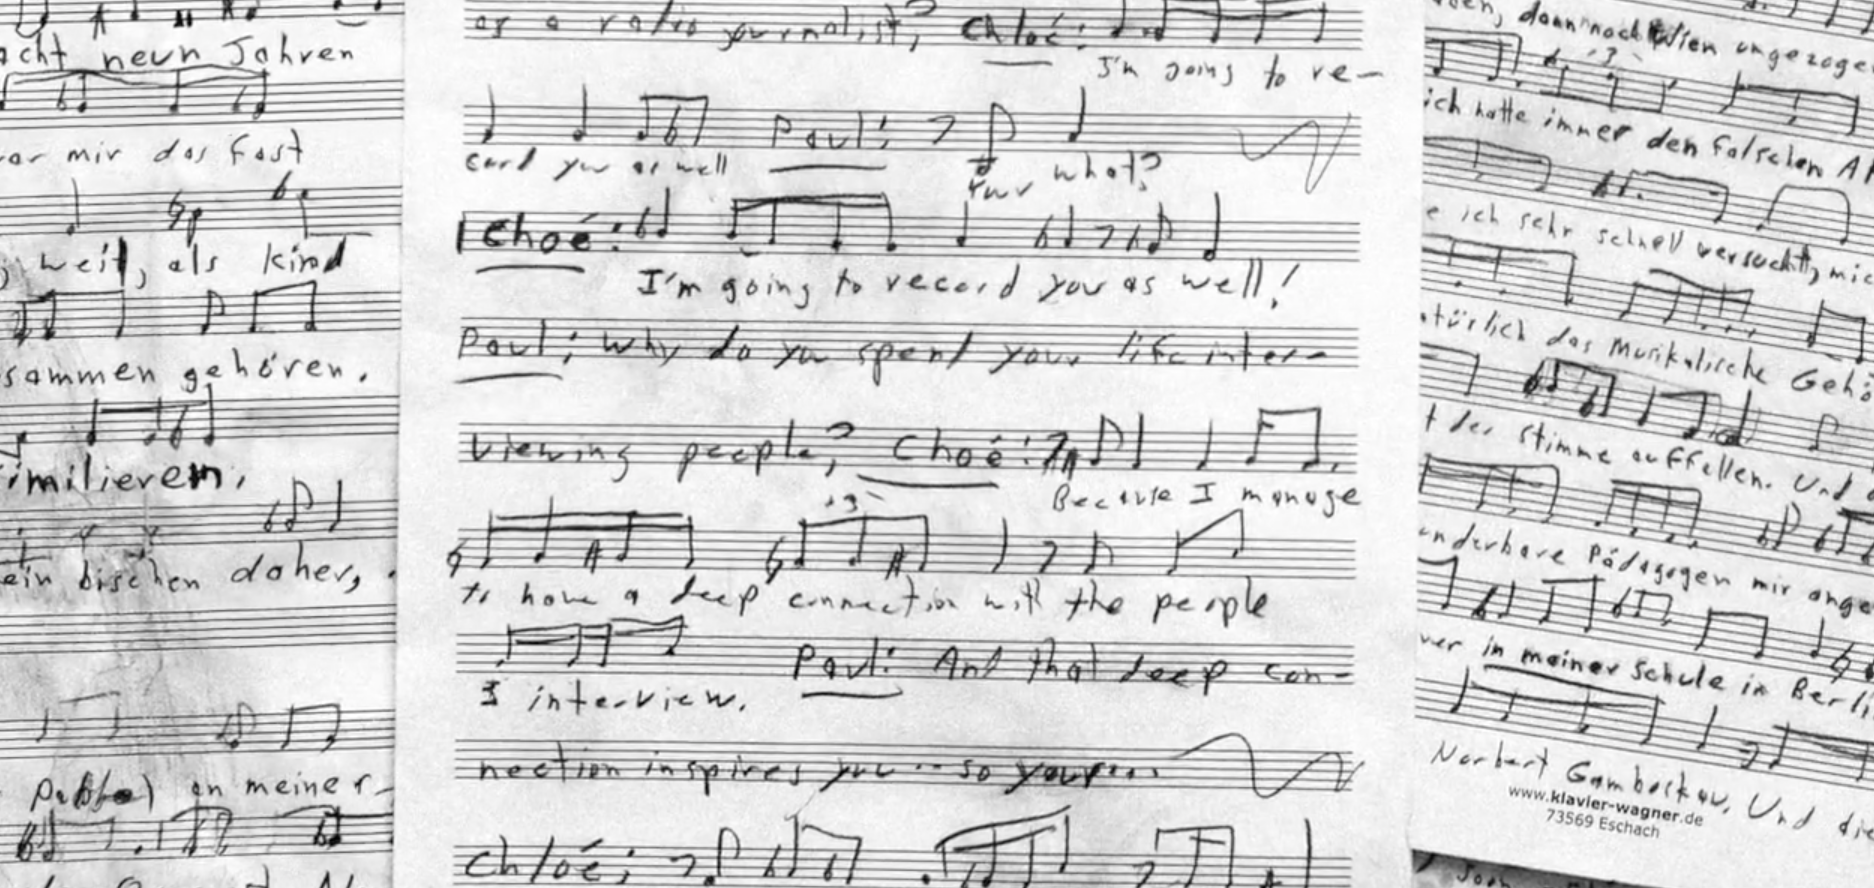 acht neun Jahren
war mir das fast
weil, als Kind
sammen gehören.
imilieren,
ein bischen daher,
an meiner
as a radio journalist? Chloé:
I'm going to re-
cord you as well Paul:
your what?
Choé:
I'm going to record you as well!
Paul: Why do you spend your life inter-
viewing people? Choé:
Because I manage
3
to have a deep connection with the people
I interview. Paul: And that deep con-
nection inspires you... so your...
Chloé:
dann nach Wien umgezogen
3
ich hatte immer den falschen A
e ich sehr schnell versucht, mic
türlich das Musikalische Gehö
t der Stimme auffallen. Und
underbare Pädagogen mir ange
ner in meiner Schule in Berli
Norbert Und die
www.klavier-wagner.de
73569 Eschach